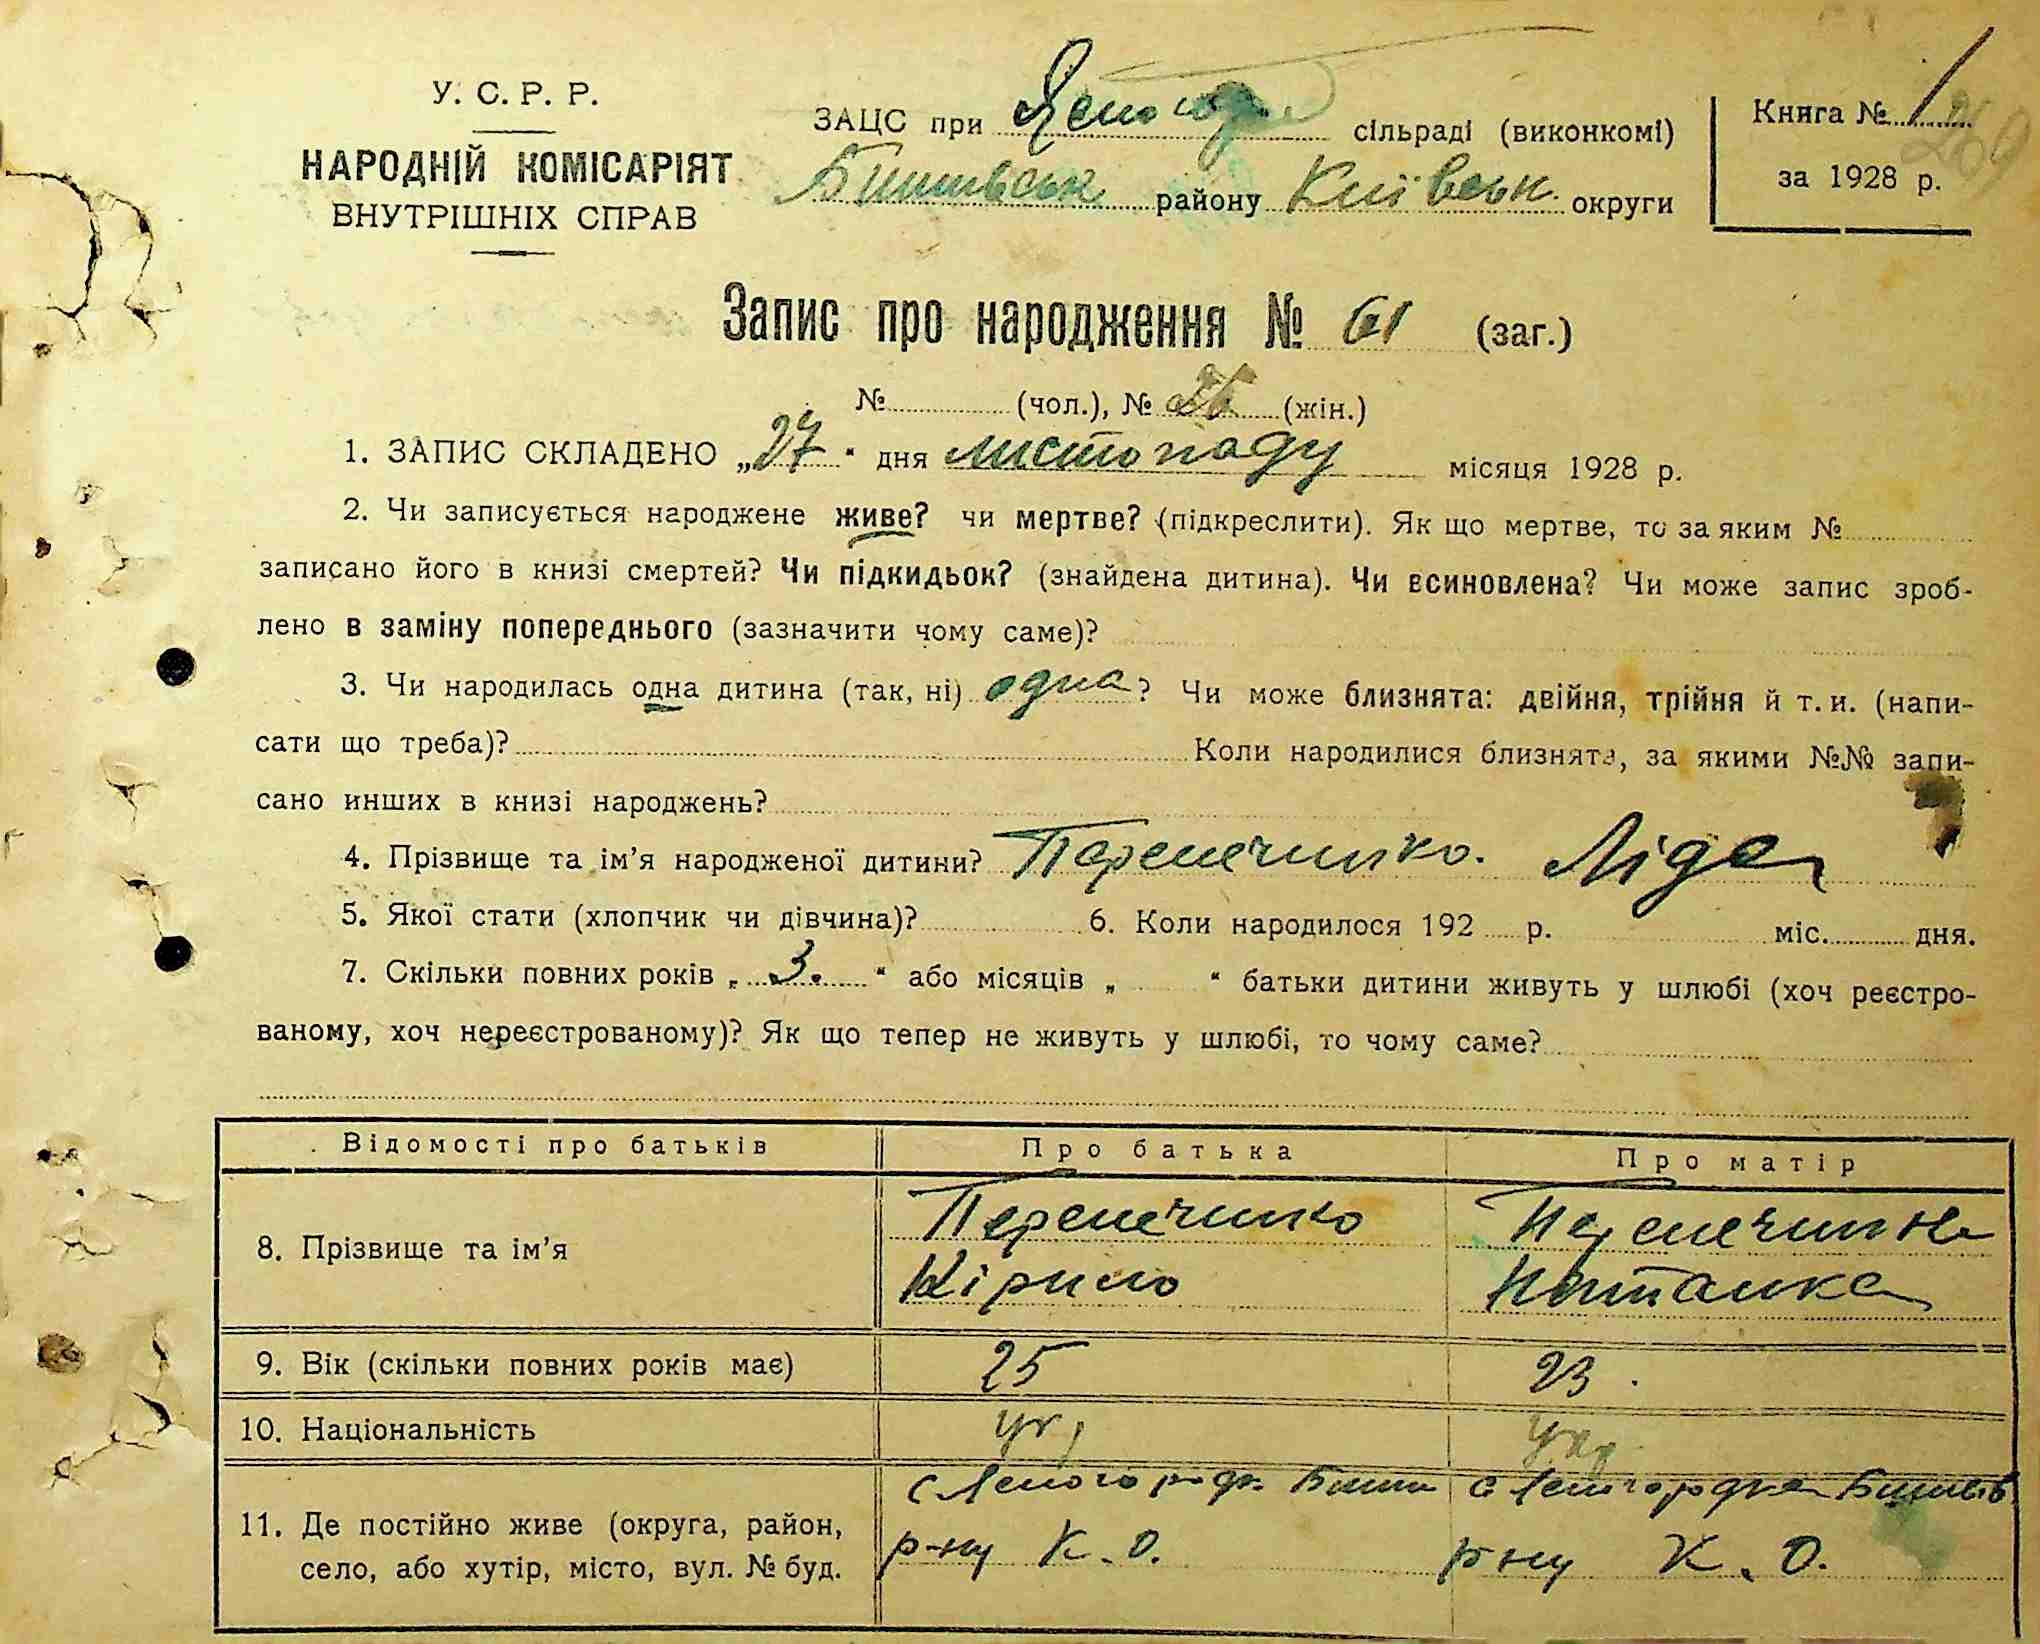 У. С. Р. Р.
НАРОДНІЙ КОМІСАРІЯТ
ВНУТРІШНІХ СПРАВ
ЗАЦС при сільраді (виконкомі)
Бишівськ району Київськ. округи
Книга № 1
за 1928 р.
Запис про народження № 61 (заг.)
№ (чол.), № (жін.)
1. ЗАПИС СКЛАДЕНО „27“ дня листопаду місяця 1928 р.
2. Чи записується народжене живе? чи мертве? (підкреслити). Як що мертве, то за яким №
записано його в книзі смертей? Чи підкидьок? (знайдена дитина). Чи всиновлена? Чи може запис зроб-
лено в заміну попереднього (зазначити чому саме)?
3. Чи народилась одна дитина (так, ні) одна? Чи може близнята: двійня, трійня й т. и. (напи-
сати що треба)? Коли народилися близнята, за якими №№ запи-
сано инших в книзі народжень?
4. Прізвище та ім’я народженої дитини? Перепечинко. Ліда
5. Якої стати (хлопчик чи дівчина)? 6. Коли народилося 192 р. міс. дня.
7. Скільки повних років „ 3. “ або місяців „ “ батьки дитини живуть у шлюбі (хоч реєстро-
ваному, хоч нереєстрованому)? Як що тепер не живуть у шлюбі, то чому саме?
Відомості про батьків Про батька Про матір
8. Прізвище та ім’я Перепечинко Кірило Наталка
9. Вік (скільки повних років має) 25 23.
10. Національність Укр Укр
11. Де постійно живе (округа, район,
село, або хутір, місто, вул. № буд.
с Ясногородк. Биш
р-ну К. О.
с Ясногородка Бишів
р-ну К. О.